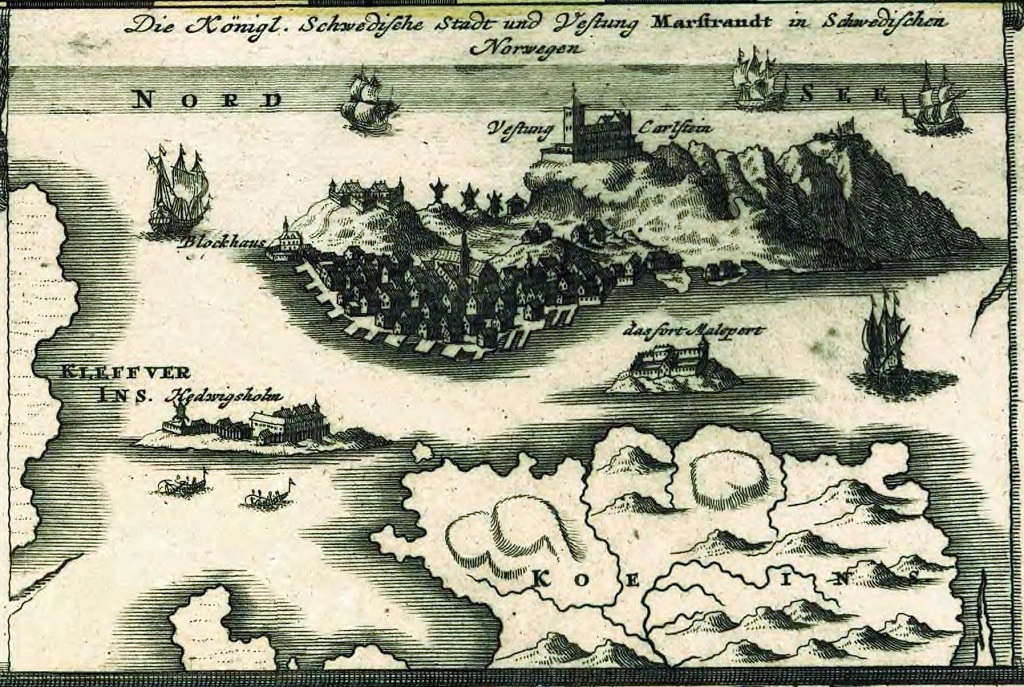 Die Königl. Schwedische Stadt und Vestung Marstrandt in Schwedischen
Norwegen
NORD SEE
Vestung Carlstein
Blockhaus
das fort Malepert
KLEFFVER
INS. Hedwigsholm
KOE INS